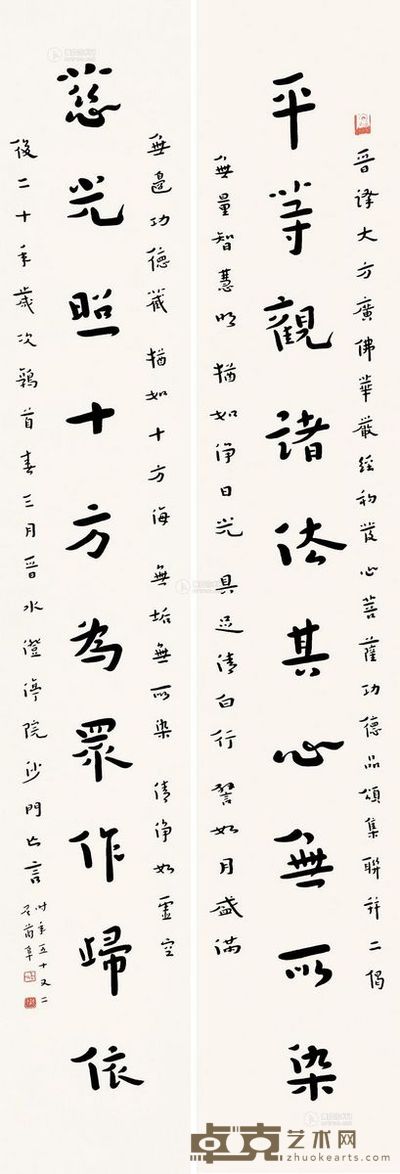 晉譯大方廣佛華嚴經初發心菩薩功德品頌集聯并二偈
平等觀諸法其心無所染
無量智慧明 猶如淨日光 具足清白行 譬如月盛滿
無邊功德藏 猶如十方海 無垢無所染 清淨如虛空
慈光照十方為眾作歸依
後二十年歲次鶉首春三月晉水澄渟院沙門亡言
时年五十又二
卓克艺术网
zhuokearts.com